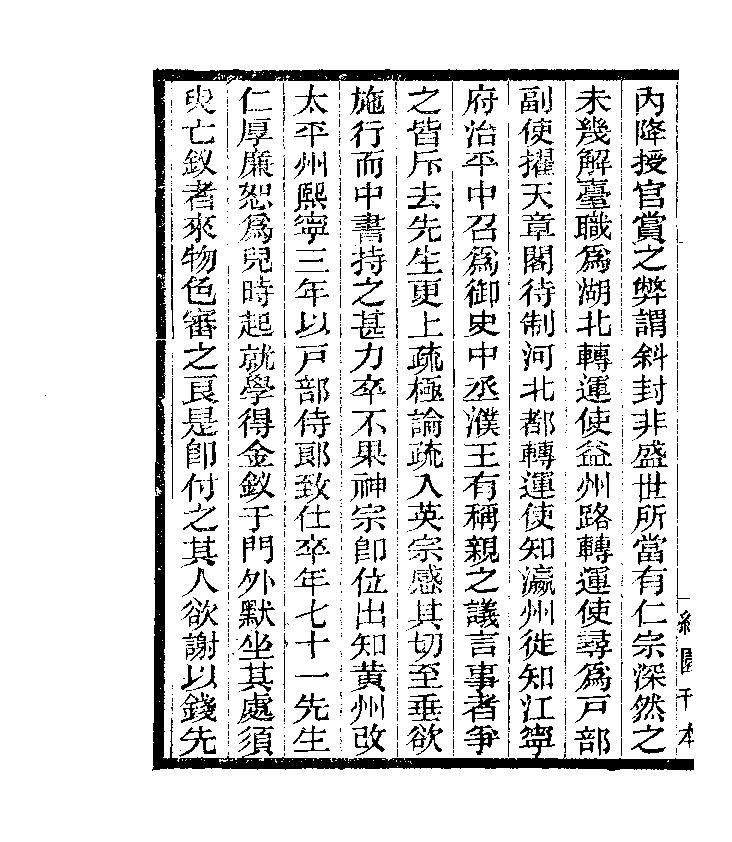 內降授官賞之弊謂斜封非盛世所當有仁宗深然之
未幾解臺職爲湖北轉運使益州路轉運使尋爲戸部
副使擢天章閣待制河北都轉運使知瀛州徙知江寧
府治平中召爲御史中丞濮王有稱親之議言事者爭
之皆斥去先生更上疏極論疏入英宗感其切至垂欲
施行而中書持之甚力卒不果神宗卽位出知黃州改
太平州熙寧三年以戸部侍郞致仕卒年七十一先生
仁厚廉恕爲兒時起就學得金釵于門外默坐其處須
臾亡釵者來物色審之良是卽付之其人欲謝以錢先